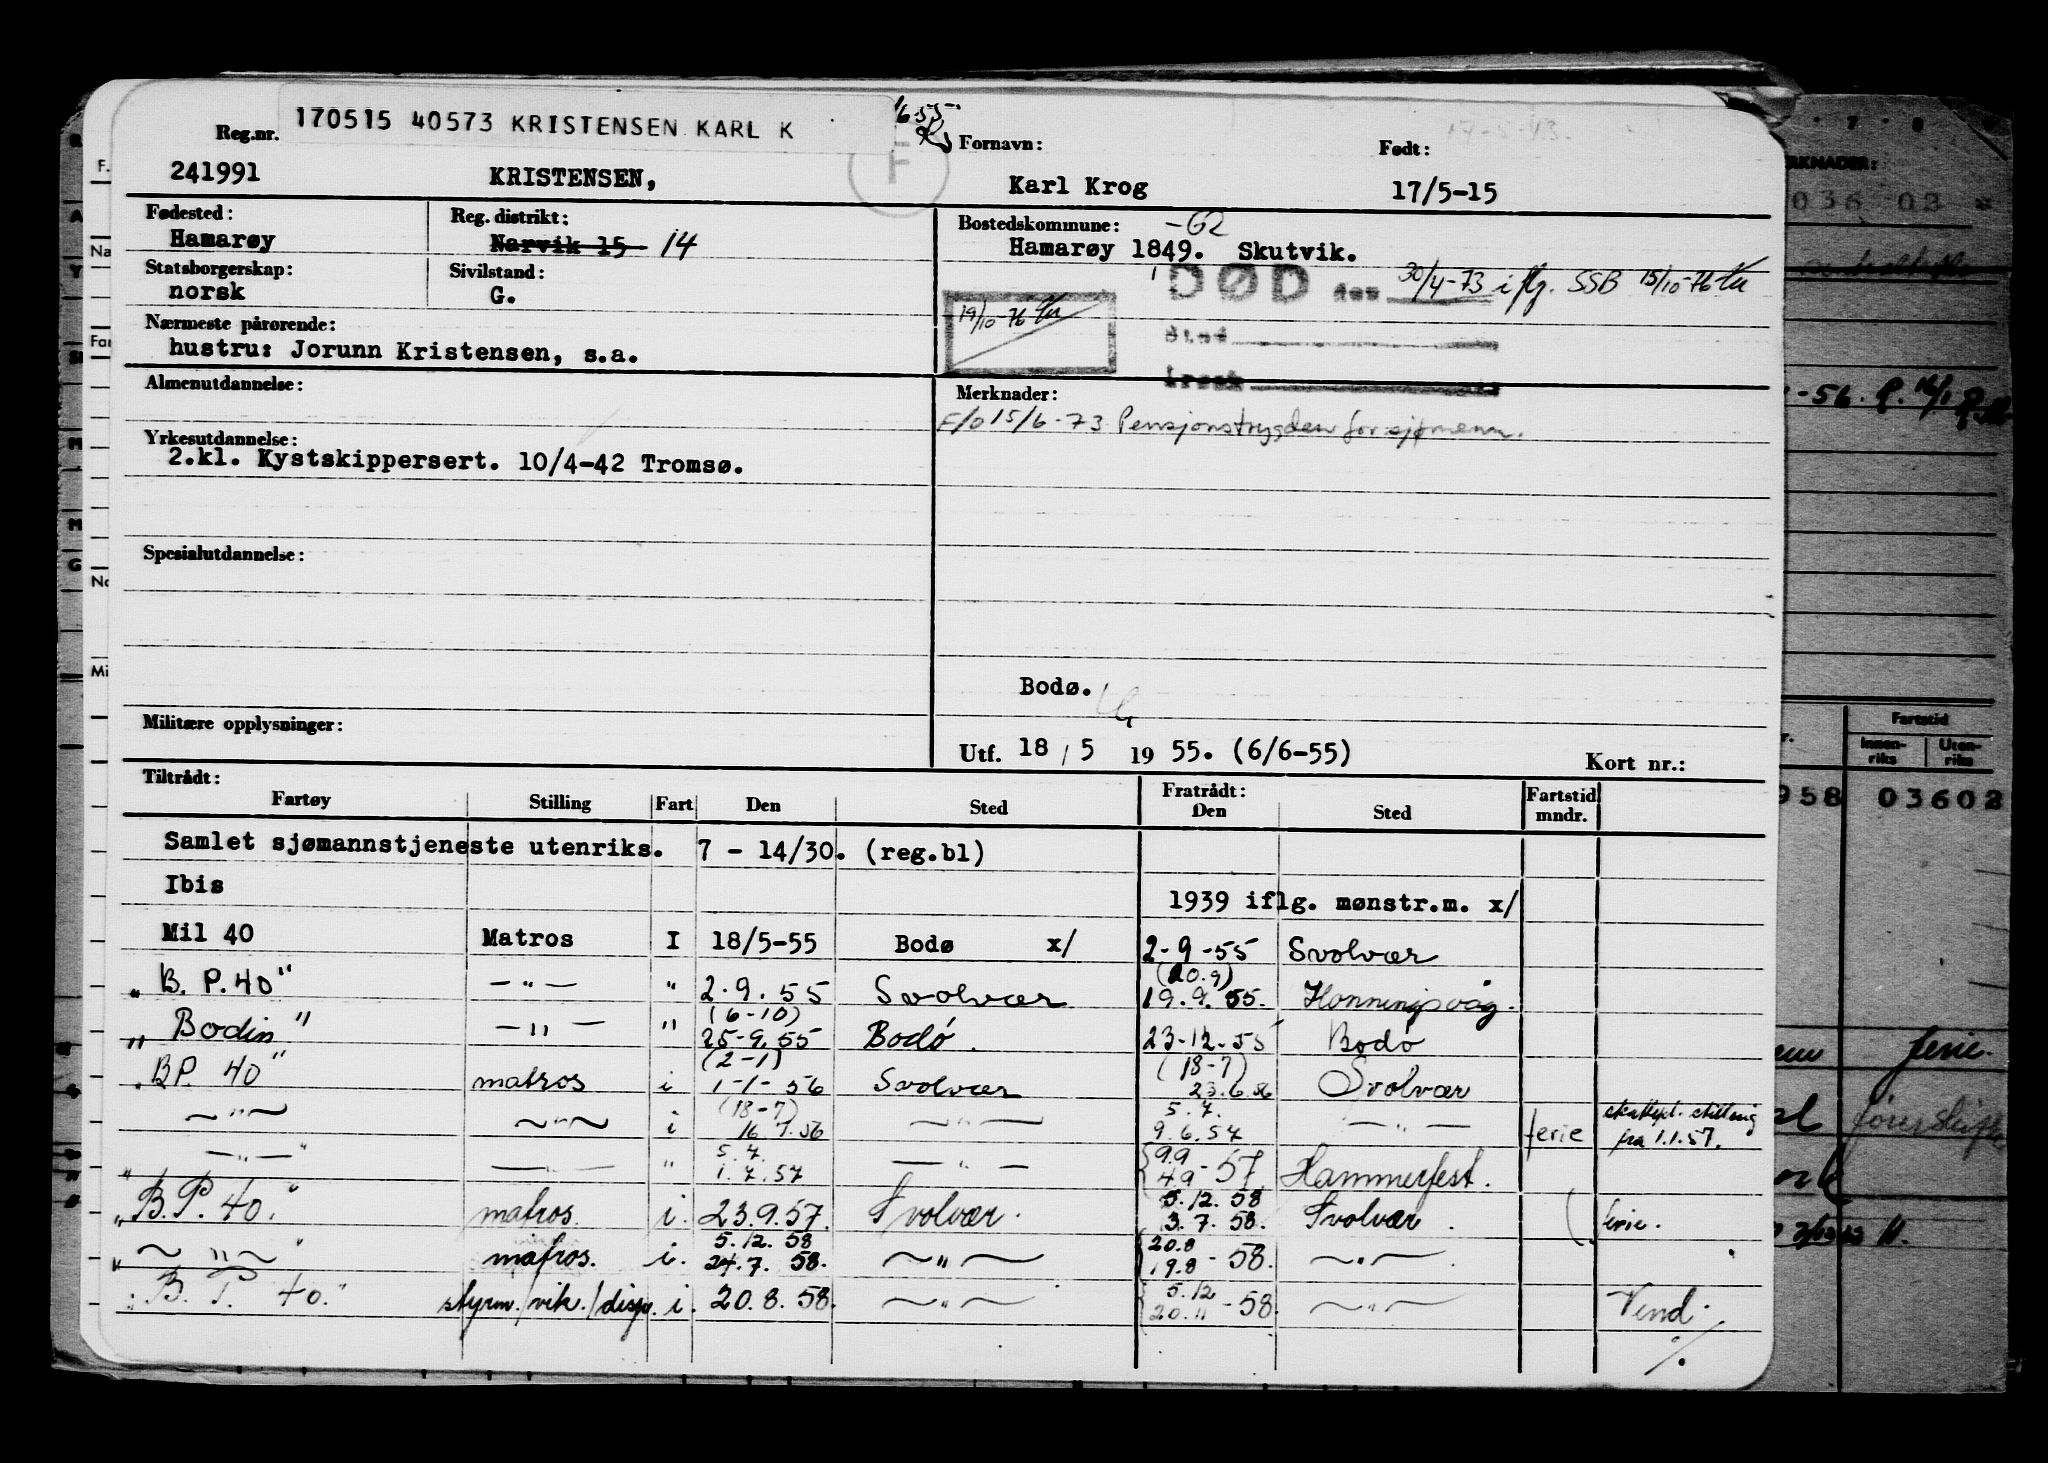 170515 40573 KRISTENSEN KARL K
Reg.nr. Fornavn: Født:
241991 KRISTENSEN, F Karl Krog 17/5-15
Fødested: Reg. distrikt: Bostedskommune: -62
Hamarøy Narvik 15 14 Hamarøy 1849. Skutvik.
Statsborgerskap: Sivilstand:
norsk G. DØD den 30/4-73 iflg. SSB 15/10-76
19/10-76
Nærmeste pårørende:
hustru: Jorunn Kristensen, s.a.
Almenutdannelse: Merknader:
F/O 15/6-73 Pensjonstrygden for sjømenn.
Yrkesutdannelse:
2.kl. Kystskippersert. 10/4-42 Tromsø.
Spesialutdannelse:
Bodø.
Militære opplysninger:
Utf. 18/5 1955. (6/6-55) Kort nr.:
Tiltrådt: Fratrådt:
Fartøy Stilling Fart Den Sted Den Sted Fartstid mndr.
Samlet sjømannstjeneste utenriks. 7 - 14/30. (reg.bl)
Ibis 1939 iflg. mønstr.m. x/
Mil 40 Matros I 18/5-55 Bodø x/ 2-9-55 Svolvær
(20.9)
"B. P. 40" — " — " 2.9.55 Svolvær 19.9.55. Honningsvåg.
(6-10)
"Bodin" — " — " 25-9.55 Bodø. 23-12-55 Bodø
(2-1) (18-7)
"BP. 40" matros i 1-1-56 Svolvær 23.6.56 Svolvær
(18-7) 5.7.
— " — — " — i 16.7.56 — " — 9.6.57 — " — ferie skattepl. stilling fra 1.1.57.
5.7. 9.9
— " — — " — " 1.7.57 — " — 4.9-57. Hammerfest.
5.12.58
"B.P. 40." matros. i. 23.9.57. Svolvær. 3.7.58. Svolvær. ferie.
5.12.58 20.8
— " — matros. i. 24.7.58. — " — 19.8-58. — " —
5.12
"B. P. 40." styrm./vik./disp. i. 20.8.58. — " — 20.11-58. — " — Vend.
7 8
RKNADER:
036 02
-56.
Fartstid
Innen-riks Uten-riks
958 03602
ferie.